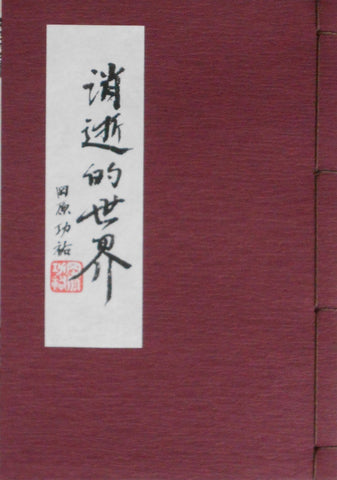 消逝的世界
田原功祐